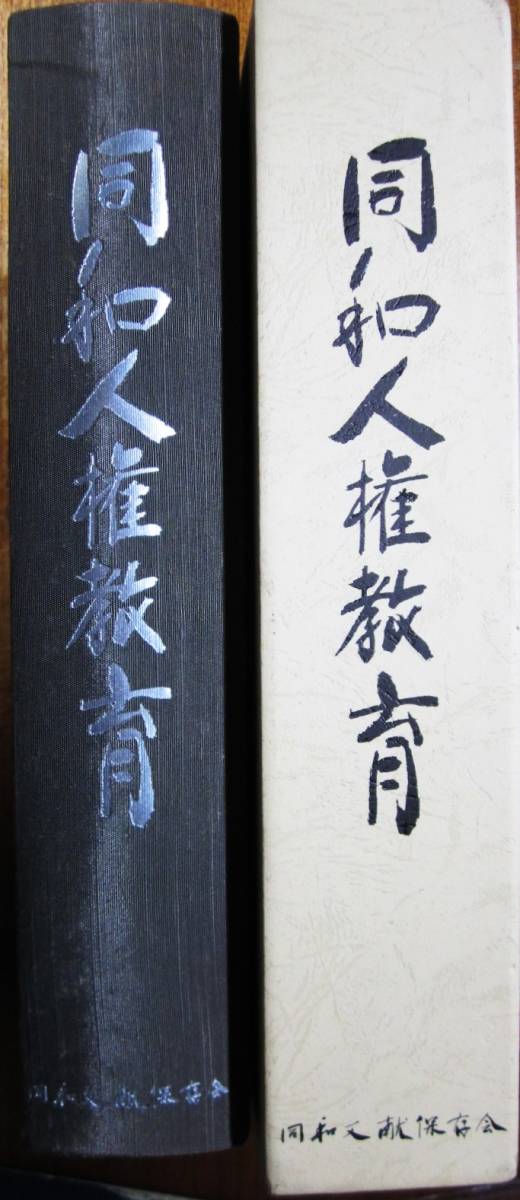 同和人権教育
同和文献保存会
同和人権教育
同和文献保存会